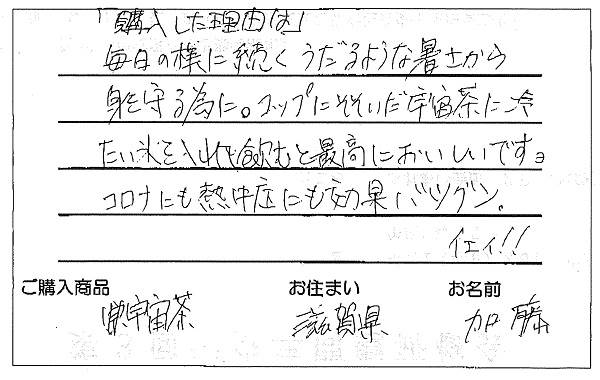 「購入した理由は」
毎日の様に続くうだるような暑さから
身を守る為に。コップにそそいだ宇宙茶に冷
たい氷を入れて飲むと最高においしいです。
コロナにも熱中症にも効果バツグン。
イエイ!!
ご購入商品 お住まい お名前
宇宙茶 滋賀県 加藤